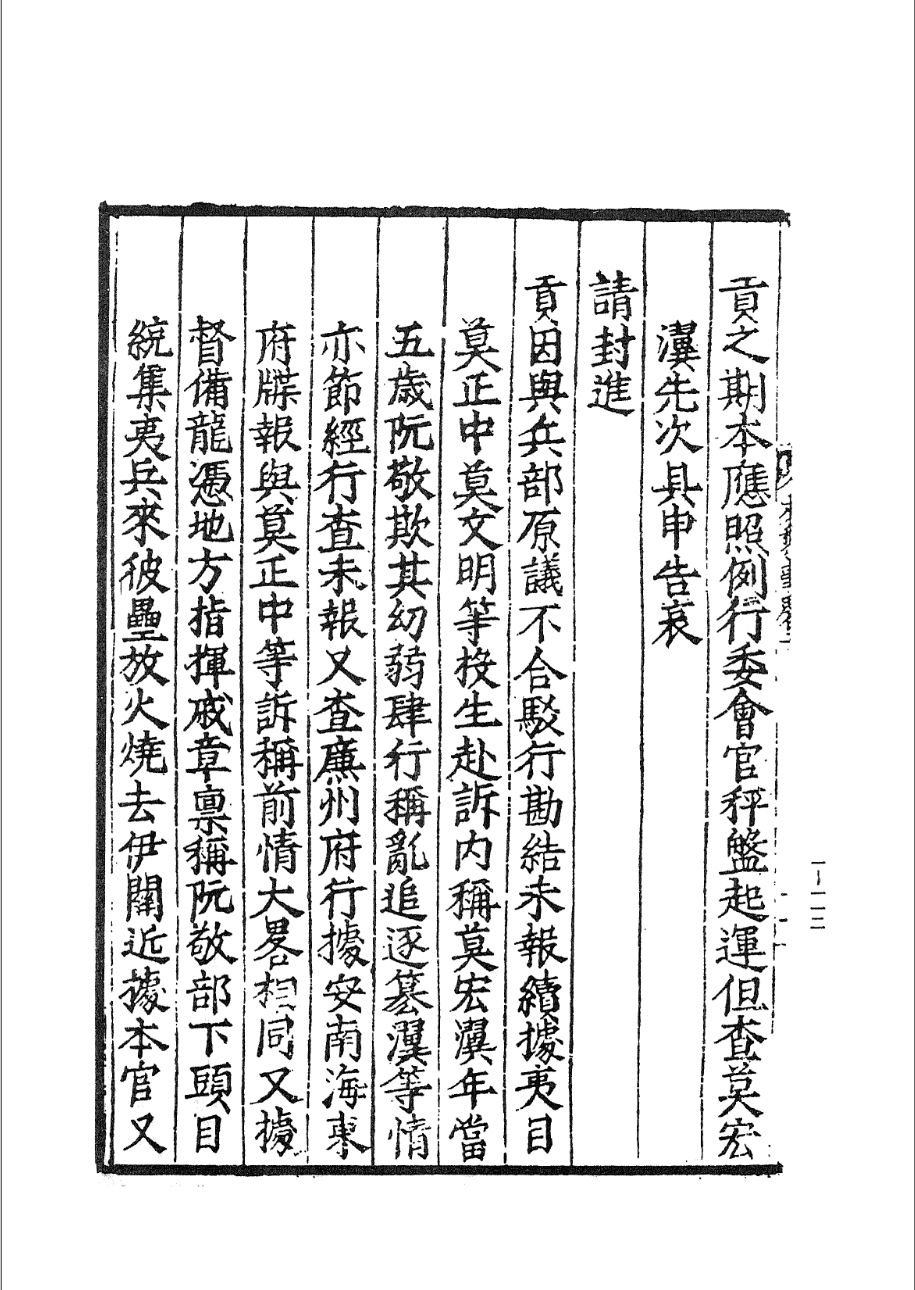 貢之期本應照例行委會官秤盤起運但查莫宏
瀷先次具申告哀
請封進
貢因與兵部原議不合駁行勘結未報續據夷目
莫正中莫文明等投生赴訴内稱莫宏瀷年當
五歲阮敬欺其幼弱肆行稱亂追逐篡瀷等情
亦節經行查未報又查廉州府行據安南海東
府牒報與莫正中等訴稱前情大畧相同又據
督備龍憑地方指揮戚章稟稱阮敬部下頭目
統集夷兵來彼壘放火燒去伊關近據本官又
一–一一三